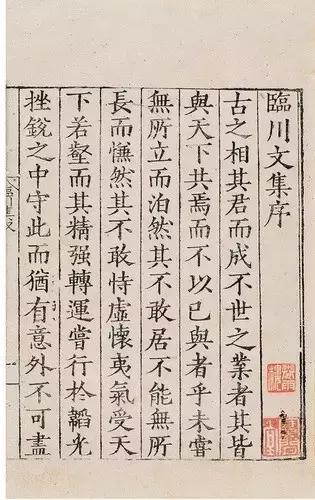 臨川文集序
古之相其君而成不世之業者其皆
與天下共焉而不以已與者乎未甞
無所立而泊然其不敢居不能無所
長而憮然其不敢恃虛懷夷氣受天
下若壑而其精强轉運嘗行於韜光
挫銳之中守此而猶有意外不可盡